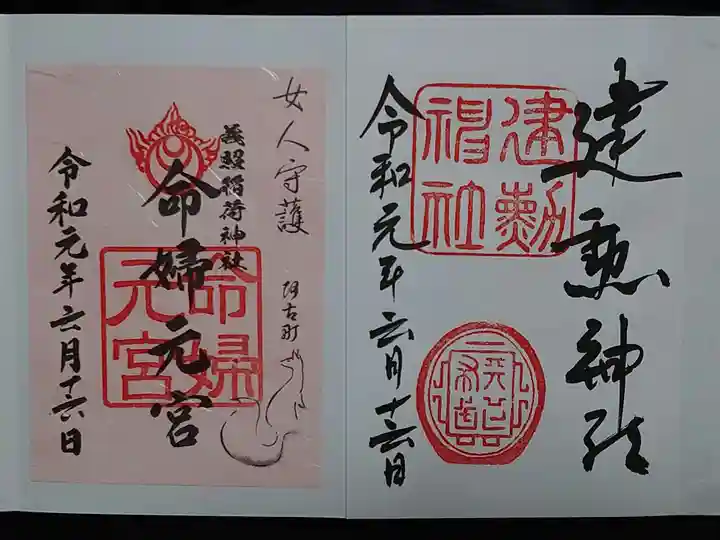 建勲神社
建勲
神社
令和元年六月十六日
天下布武
女人守護
阿古町
義照稲荷神社
命婦元宮
命婦
元宮
令和元年六月十六日